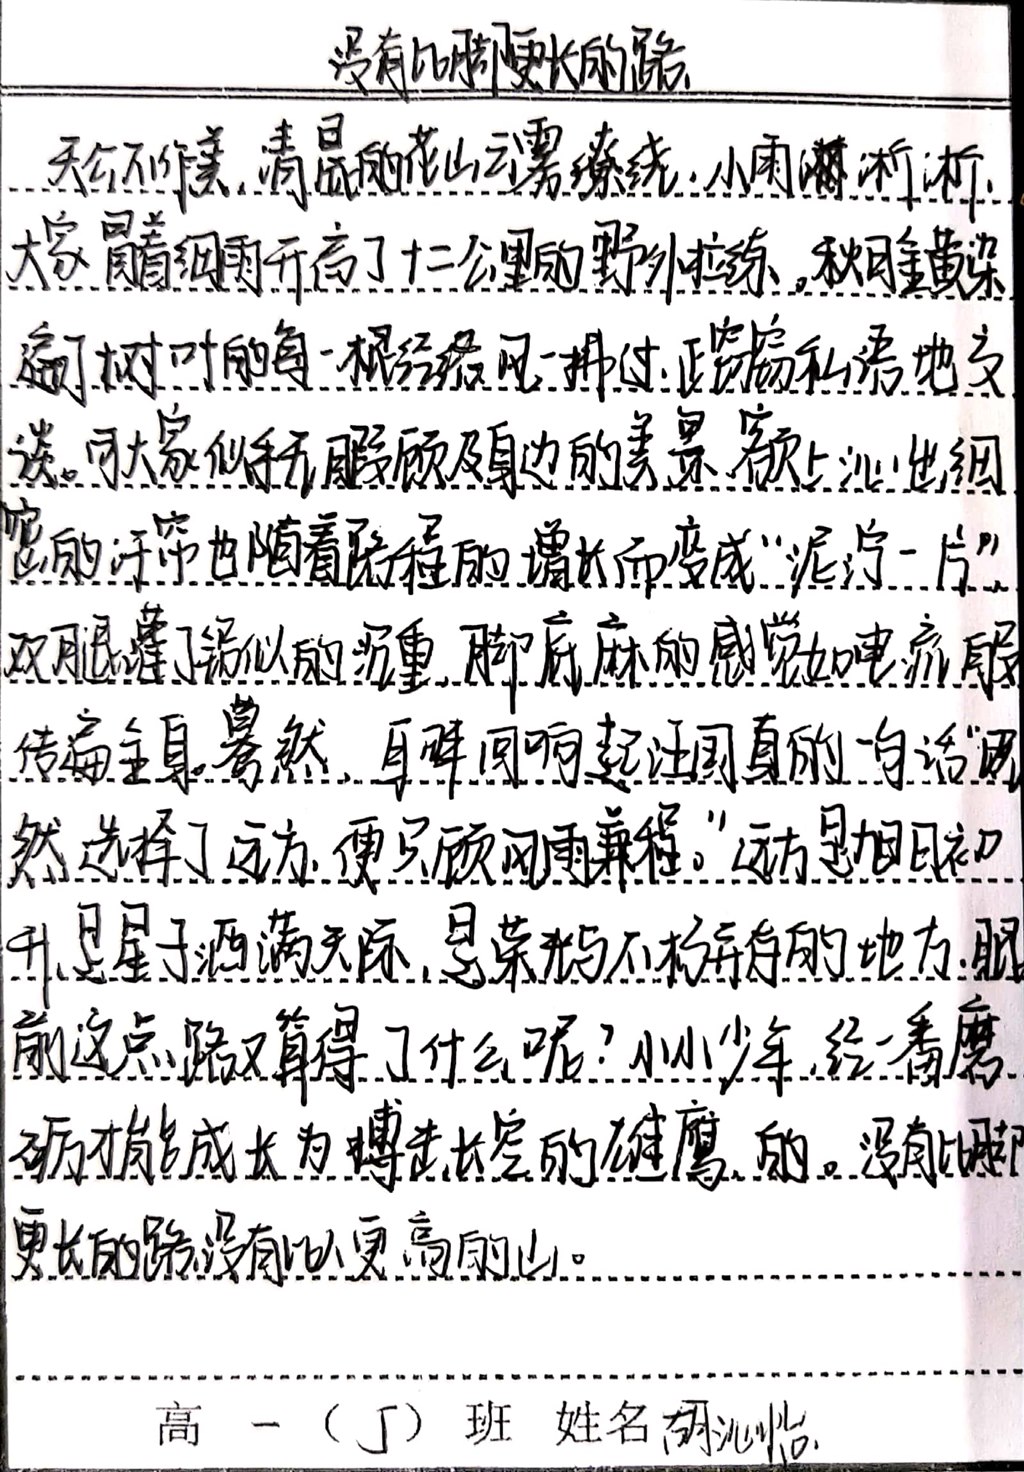 没有比脚更长的路
天公不作美，清晨的花山云雾缭绕，小雨淋淅淅，
大家冒着细雨开启了十二公里的野外拉练。秋日金黄染
遍了树叶的每一根经络，风一拂过，正窃窃私语地交
谈。可大家似乎无暇顾及身边的美景，额上沁出细
密的汗，帘也随着路程的增长而变成“泥泞一片”，
双腿灌了铅似的沉重，脚底麻的感觉如电流般
传遍全身。蓦然，耳畔回响起汪国真的一句话“既
然选择了远方，便只顾风雨兼程。”远方是旭日初
升，是星子洒满天际，是荣光与不朽并存的地方，眼
前这点路又算得了什么呢？小小少年，经一番磨
砺才能成长为搏击长空的雄鹰的。没有比脚
更长的路，没有比人更高的山。
高一（5）班 姓名 胡沁怡